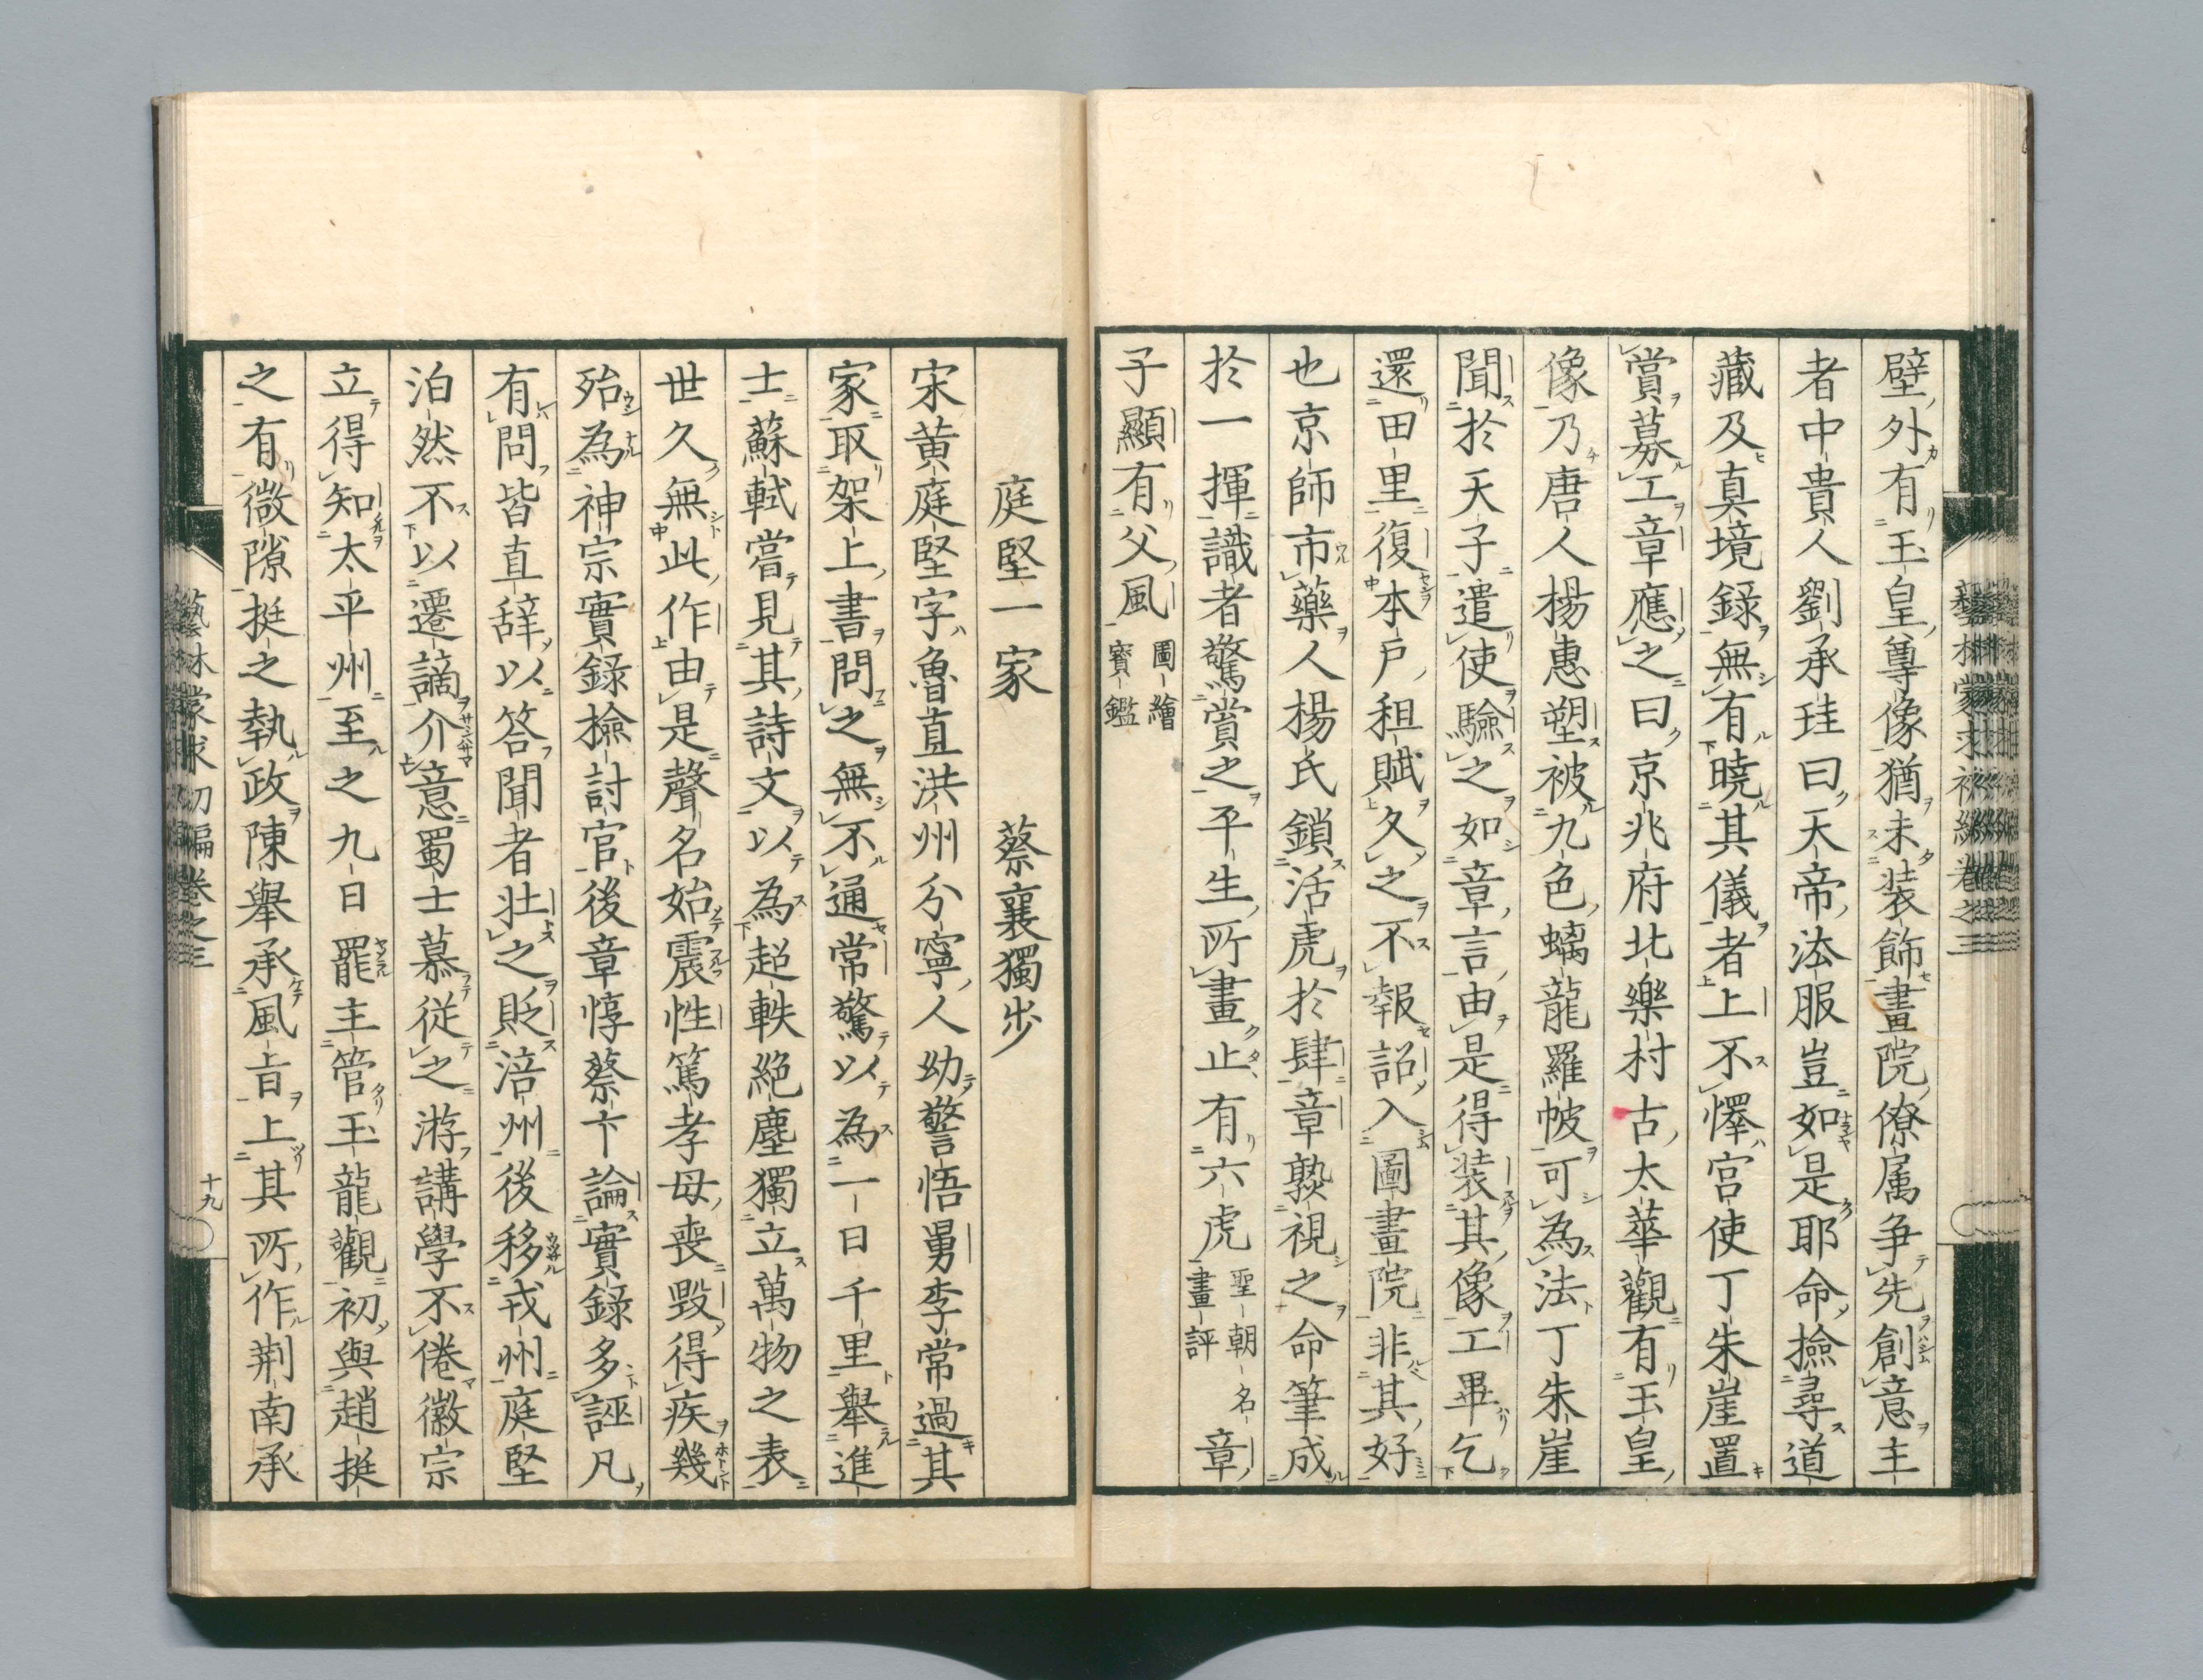 壁外有玉皇尊像猶未装飾畫院僚属争先創意主
者中貴人劉承珪曰天帝法服豈如是耶命撿尋道
藏及真境錄無有曉其儀者上不懌宮使丁朱崖置
賞募工章應之曰京兆府北樂村古太華觀有玉皇
像乃唐人楊惠塑被九色螭龍羅帔可為法丁朱崖
聞於天子遣使驗之如章言由是得装其像工畢乞
還田里復本戶租賦久之不報詔入圖畫院非其好
也京師市藥人楊氏鎖活虎於肆章熟視之命筆成
於一揮識者驚賞之平生所畫止有六虎聖朝名畫評章
子顯有父風圖繪寳鑑
庭堅一家　蔡襄獨步
宋黄庭堅字魯直洪州分寧人幼警悟舅李常過其
家取架上書問之無不通常驚以為一日千里舉進
士蘇軾嘗見其詩文以為超軼絕塵獨立萬物之表
世久無此作由是聲名始震性篤孝母喪毀得疾幾
殆為神宗實錄撿討官後章惇蔡卞論實錄多誣凡
有問皆直辞以答聞者壮之貶涪州後移戎州庭堅
泊然不以遷謫介意蜀士慕従之游講學不倦徽宗
立得知太平州至之九日罷主管玉龍觀初與趙挺
之有微隙挺之執政陳舉承風旨上其所作荆南承
藝林蒙求初編卷之三
十九